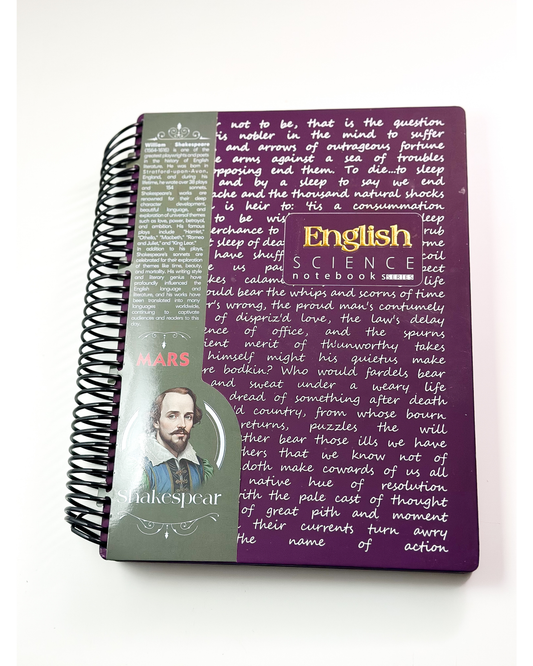 William Shakespeare
(1564-1616) is one of the
greatest playwrights and poets
in the history of English
literature. He was born in
Stratford-upon-Avon,
England, and during his
lifetime, he wrote over 38 plays
and 154 sonnets.
Shakespeare's works are
renowned for their deep
character development,
beautiful language, and
exploration of universal themes
such as love, power, betrayal,
and ambition. His famous
plays include "Hamlet,"
"Othello," "Macbeth," "Romeo
and Juliet," and "King Lear."
In addition to his plays,
Shakespeare's sonnets are
celebrated for their exploration
of themes like time, beauty,
and mortality. His writing style
and literary genius have
profoundly influenced the
English language and
literature, and his works have
been translated into many
languages worldwide,
continuing to captivate
audiences and readers to this
day.
MARS
shakespear
not to be, that is the question
is nobler in the mind to suffer
and arrows of outrageous fortune
arms against a sea of troubles
opposing end them. To die...to sleep
and by a sleep to say we end
ache and the thousand natural shocks
is heir to: 'tis a consummation
to be wis sleep
perchance to rub
t sleep of dea
have shuff coil
us pa ect
kes calam life
ould bear the whips and scorns of time
r's wrong, the proud man's contumely
of dispriz'd love, the law's delay
ence of office, and the spurns
ient merit of th'unworthy takes
himself might his quietus make
re bodkin? Who would fardels bear
and sweat under a weary life
dread of something after death
d country, from whose bourn
returns, puzzles the will
ther bear those ills we have
thers that we know not of
doth make cowards of us all
native hue of resolution
ith the pale cast of thought
of great pith and moment
their currents turn awry
the name of action
English
SCIENCE
notebooks SERIES